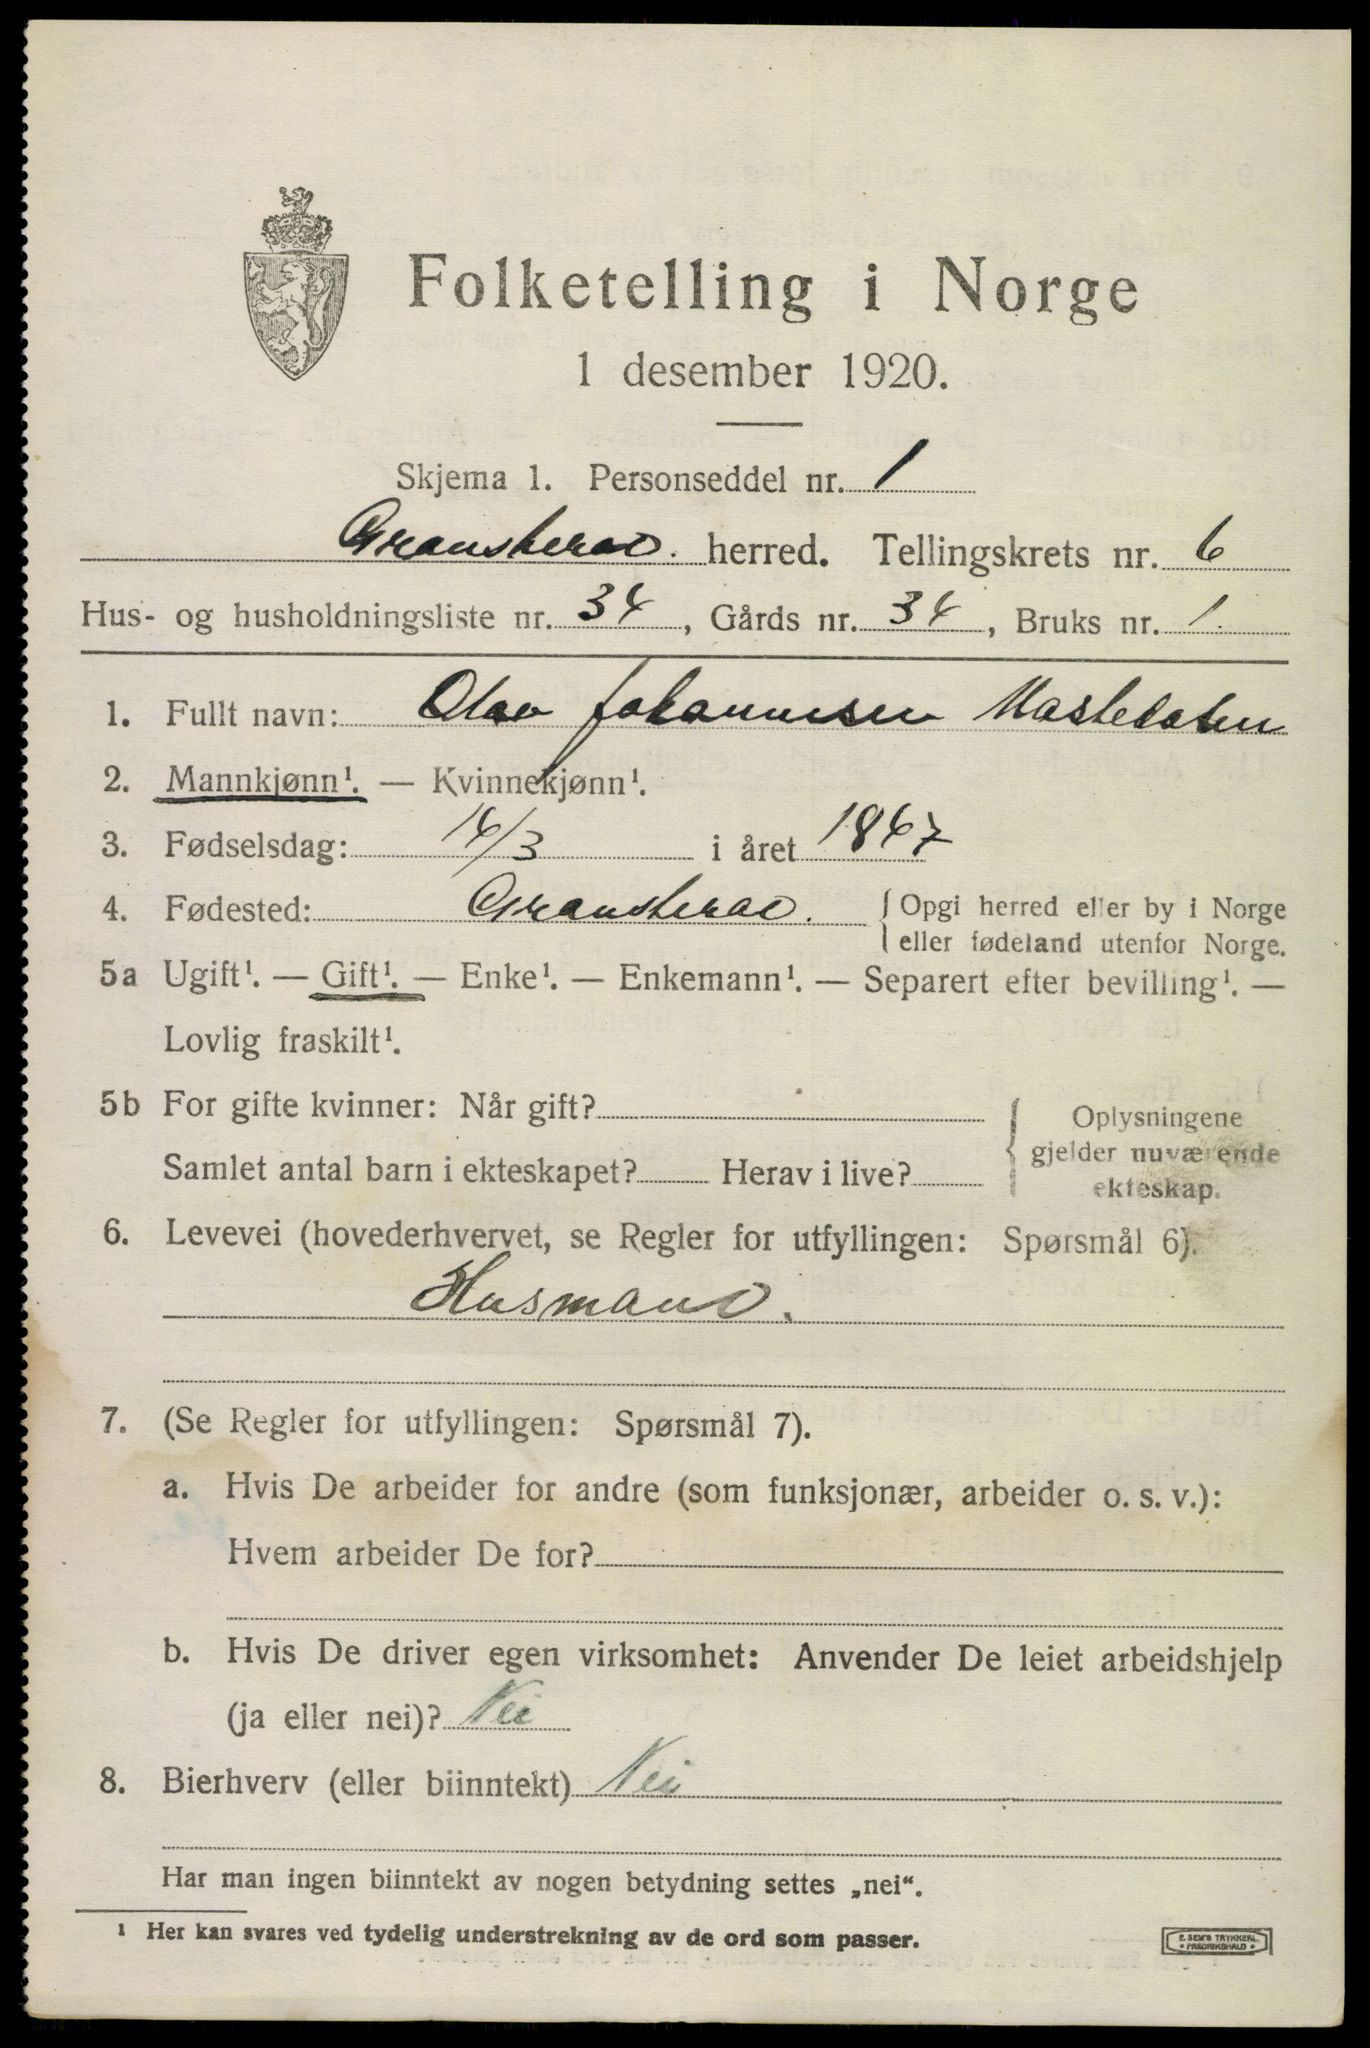 Folketelling i Norge
1 desember 1920.
Skjema 1. Personseddel nr. 1
Gransherad. herred. Tellingskrets nr. 6
Hus- og husholdningsliste nr. 34, Gårds nr. 34, Bruks nr. 1.
1. Fullt navn: Olav Johannesen
2. Mannkjønn¹. — Kvinnekjønn¹.
3. Fødselsdag: 16/3 i året 1867
4. Fødested: Gransherad. { Opgi herred eller by i Norge
eller fødeland utenfor Norge.
5a Ugift¹. — Gift¹. — Enke¹. — Enkemann¹. — Separert efter bevilling¹. —
Lovlig fraskilt¹.
5b For gifte kvinner: Når gift?
Samlet antal barn i ekteskapet? Herav i live?
{ Oplysningene
gjelder nuværende
ekteskap.
6. Levevei (hovederhvervet, se Regler for utfyllingen: Spørsmål 6).
Husmand.
7. (Se Regler for utfyllingen: Spørsmål 7).
a. Hvis De arbeider for andre (som funksjonær, arbeider o. s. v.):
Hvem arbeider De for?
b. Hvis De driver egen virksomhet: Anvender De leiet arbeidshjelp
(ja eller nei)? Nei
8. Bierhverv (eller biinntekt) Nei
Har man ingen biinntekt av nogen betydning settes „nei“.
¹ Her kan svares ved tydelig understrekning av de ord som passer.
E. SEM'S TRYKKERI
FREDRIKSHALD